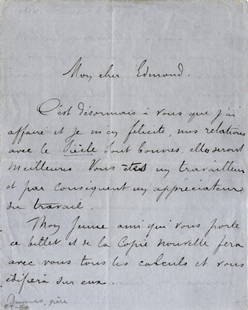 Mon cher Edmond.
C'est désormais à vous que j'ai
affaire et je m'en félicite, nos relations
avec le Siècle sont bonnes, elles seront
meilleures. Vous êtes un travailleur
et par conséquent un appréciateur
du travail.
Mon jeune ami qui vous porte
ce billet et de la Copie nouvelle fera
avec vous tous les calculs et vous
édifiera sur eux.
Dumas, père